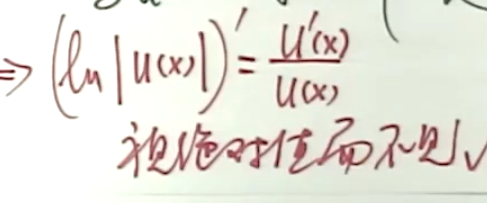 ⇒ (ln|u(x)|)' = u'(x)/u(x)
视绝对值而不见√